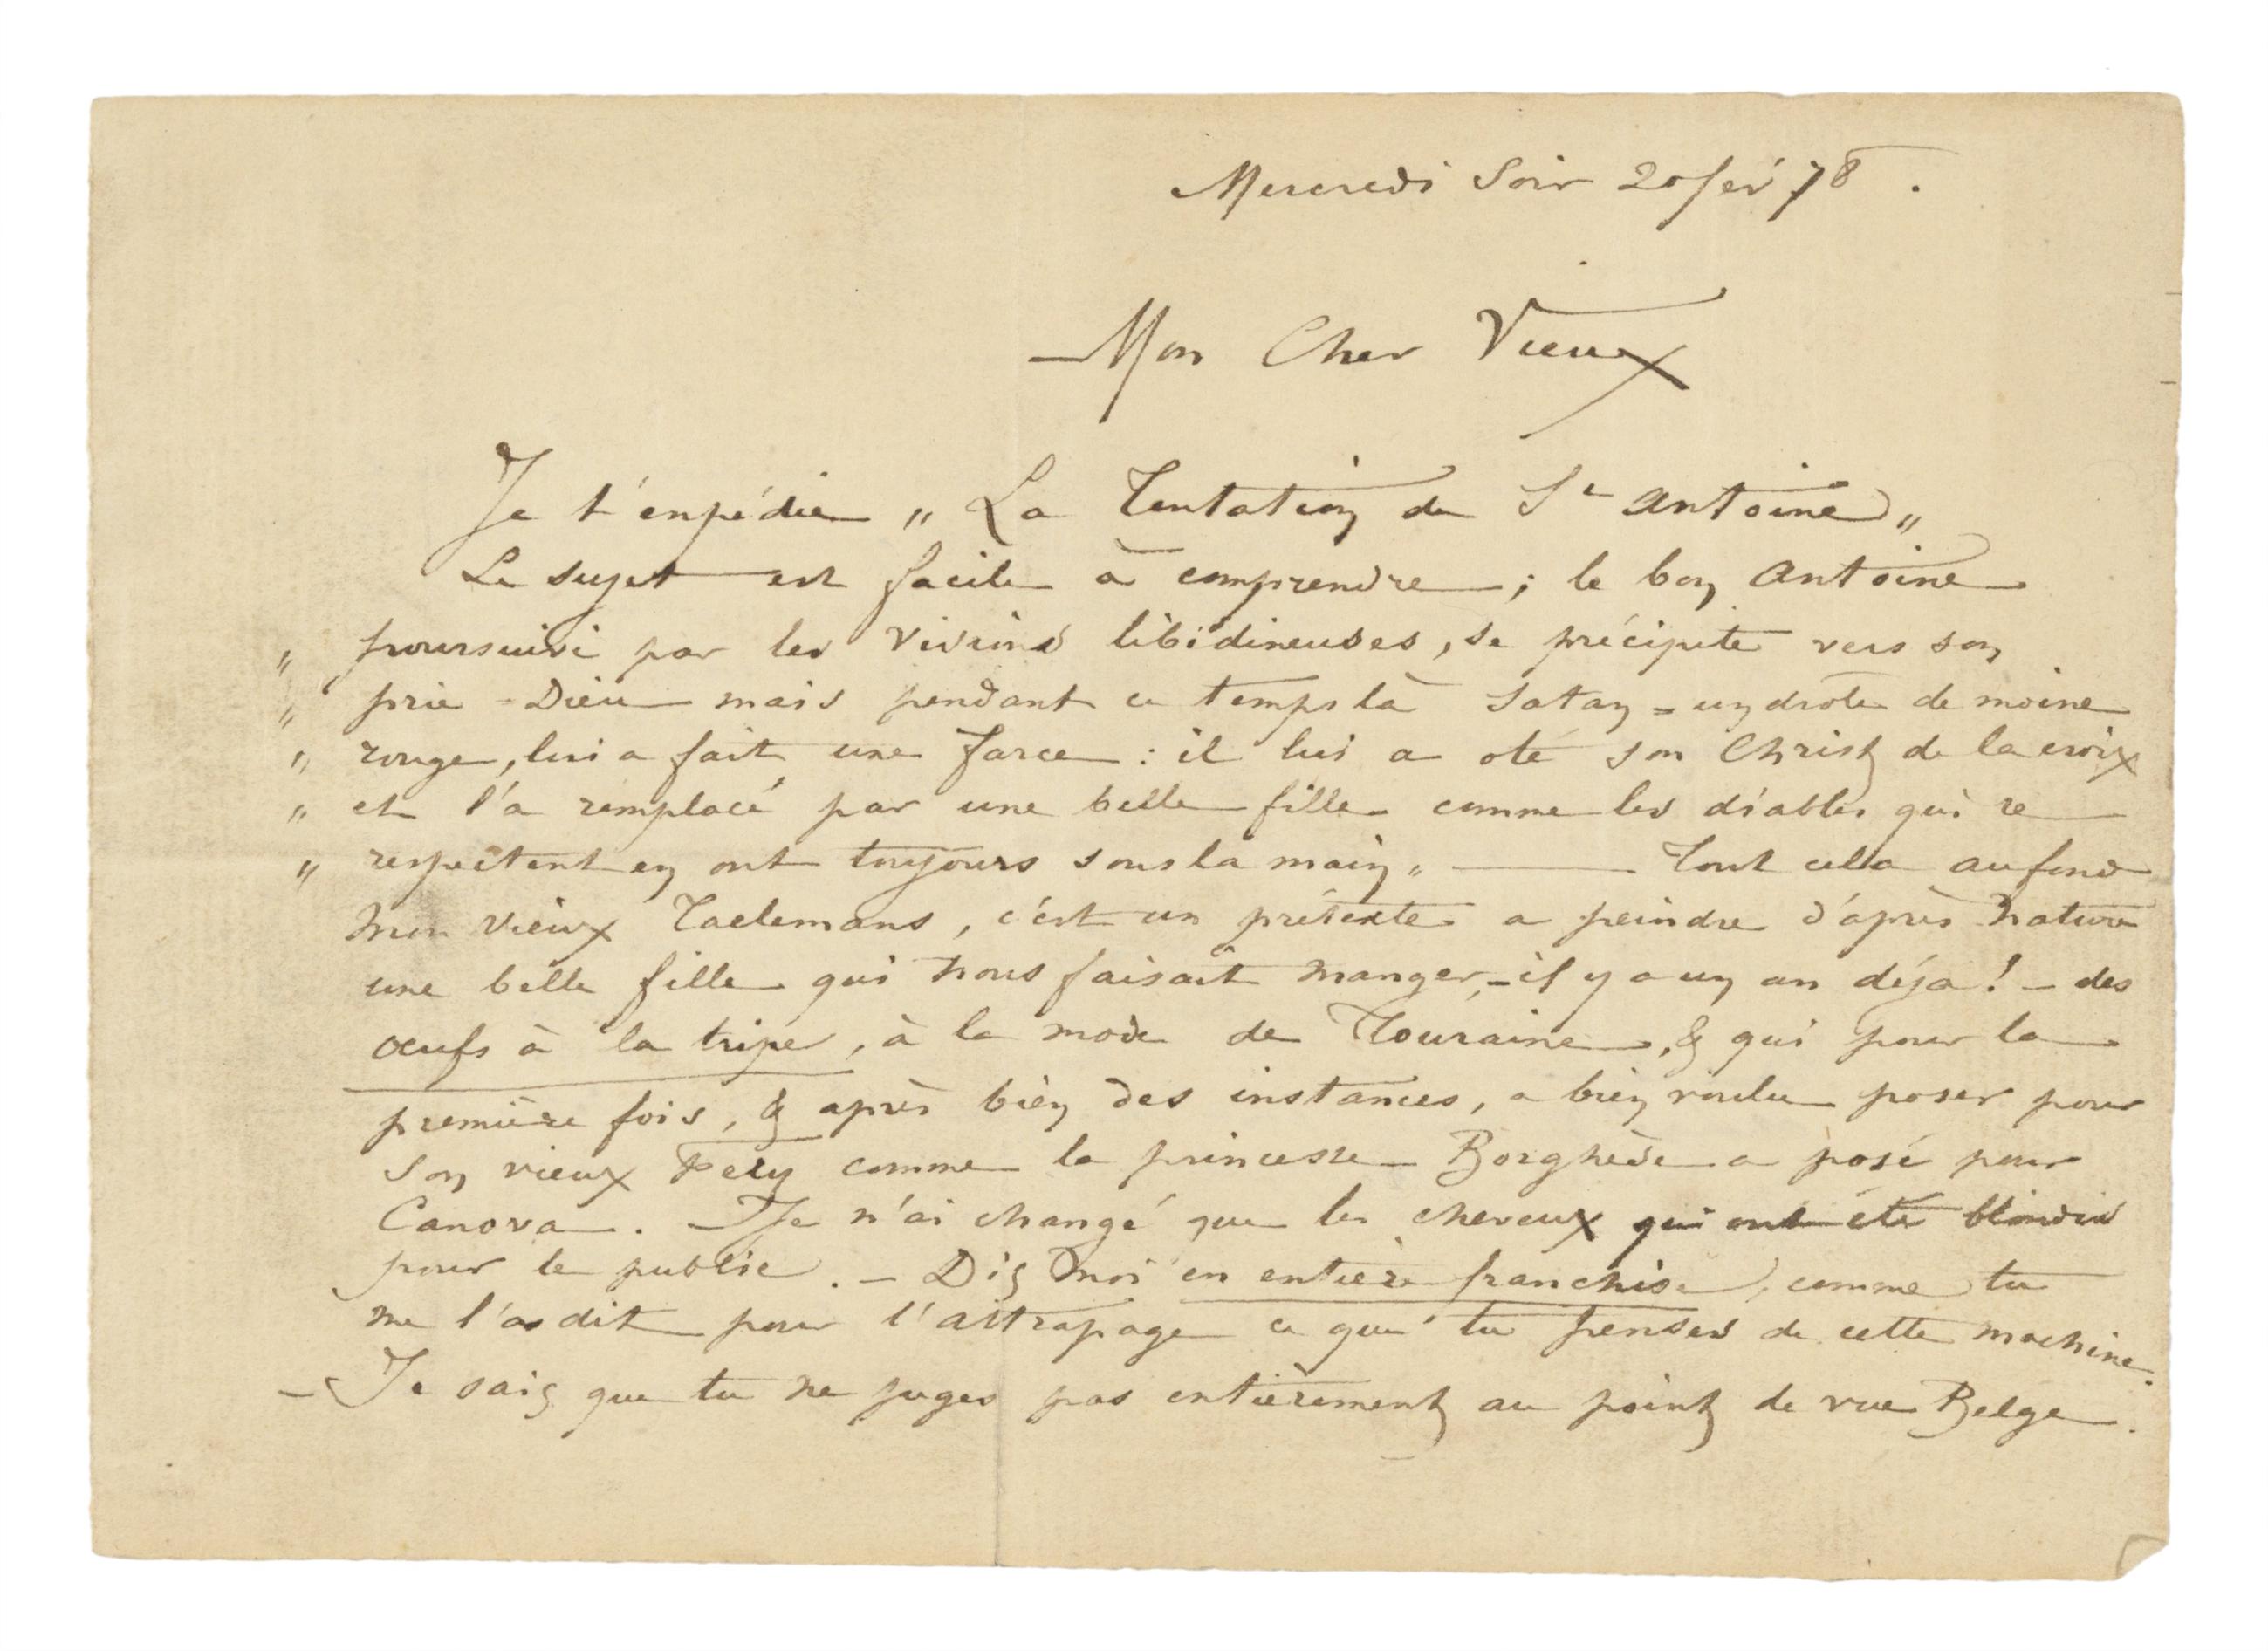 Mercredi Soir 20 fév 78.
Mon Cher Vieux
Je t'expédie „La Tentation de St Antoine„
Le sujet est facile à comprendre ; le bon Antoine
„ poursuivi par les visions libidineuses, se précipite vers son
„ prie-Dieu mais pendant ce temps là Satan = un drôle de moine
„ rouge, lui a fait une farce : il lui a oté son Christ de la croix
„ et l'a remplacé par une belle fille comme les diables qui se
„ respectent en ont toujours sous la main„ — Tout cela au fond
mon vieux Taelemans, c'est un prétexte a peindre d'après nature
une belle fille qui nous faisait manger, – il y a un an déja ! – des
œufs à la tripe, à la mode de Touraine, & qui pour la
première fois, & après bien des instances, a bien voulu poser pour
son vieux Fely comme la princesse Borghèse a posé pour
Canova. – Je n'ai changé que les cheveux qui ont été blondis
pour le public. – Dis moi en entière franchise, comme tu
me l'as dit pour l'attrapage ce que tu penses de cette machine.
– Je sais que tu ne juges pas entièrement au point de vue Belge.